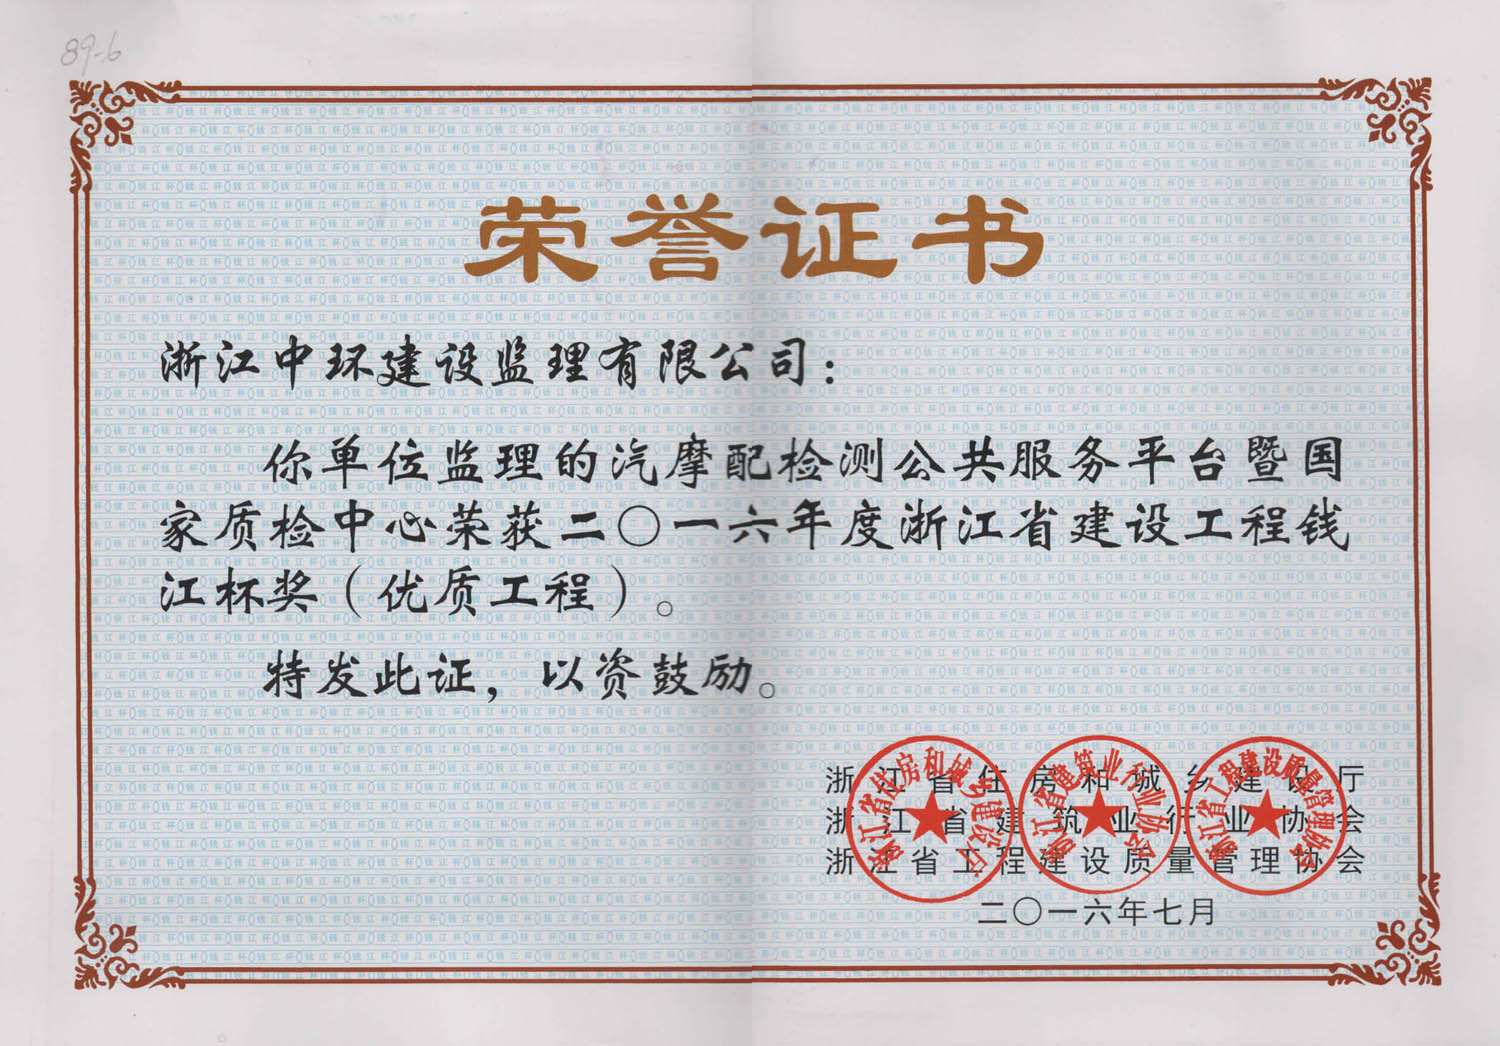 89-6
荣誉证书
浙江中环建设监理有限公司：
你单位监理的汽摩配检测公共服务平台暨国
家质检中心荣获二〇一六年度浙江省建设工程钱
江杯奖（优质工程）。
特发此证，以资鼓励。
浙江省住房和城乡建设厅
浙江省建筑业行业协会
浙江省工程建设质量管理协会
二〇一六年七月
浙江省住房和城乡建设厅
浙江省建筑业行业协会
浙江省工程建设质量管理协会